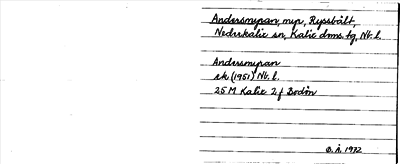 Andersmyran, myr, Ryssbält,
Nederkalix sn, Kalix dms. tg, Nb. l.
Andersmyran
rk (1951) Nb. l.
25 M Kalix 2 f Bodön
B. Å. 1972